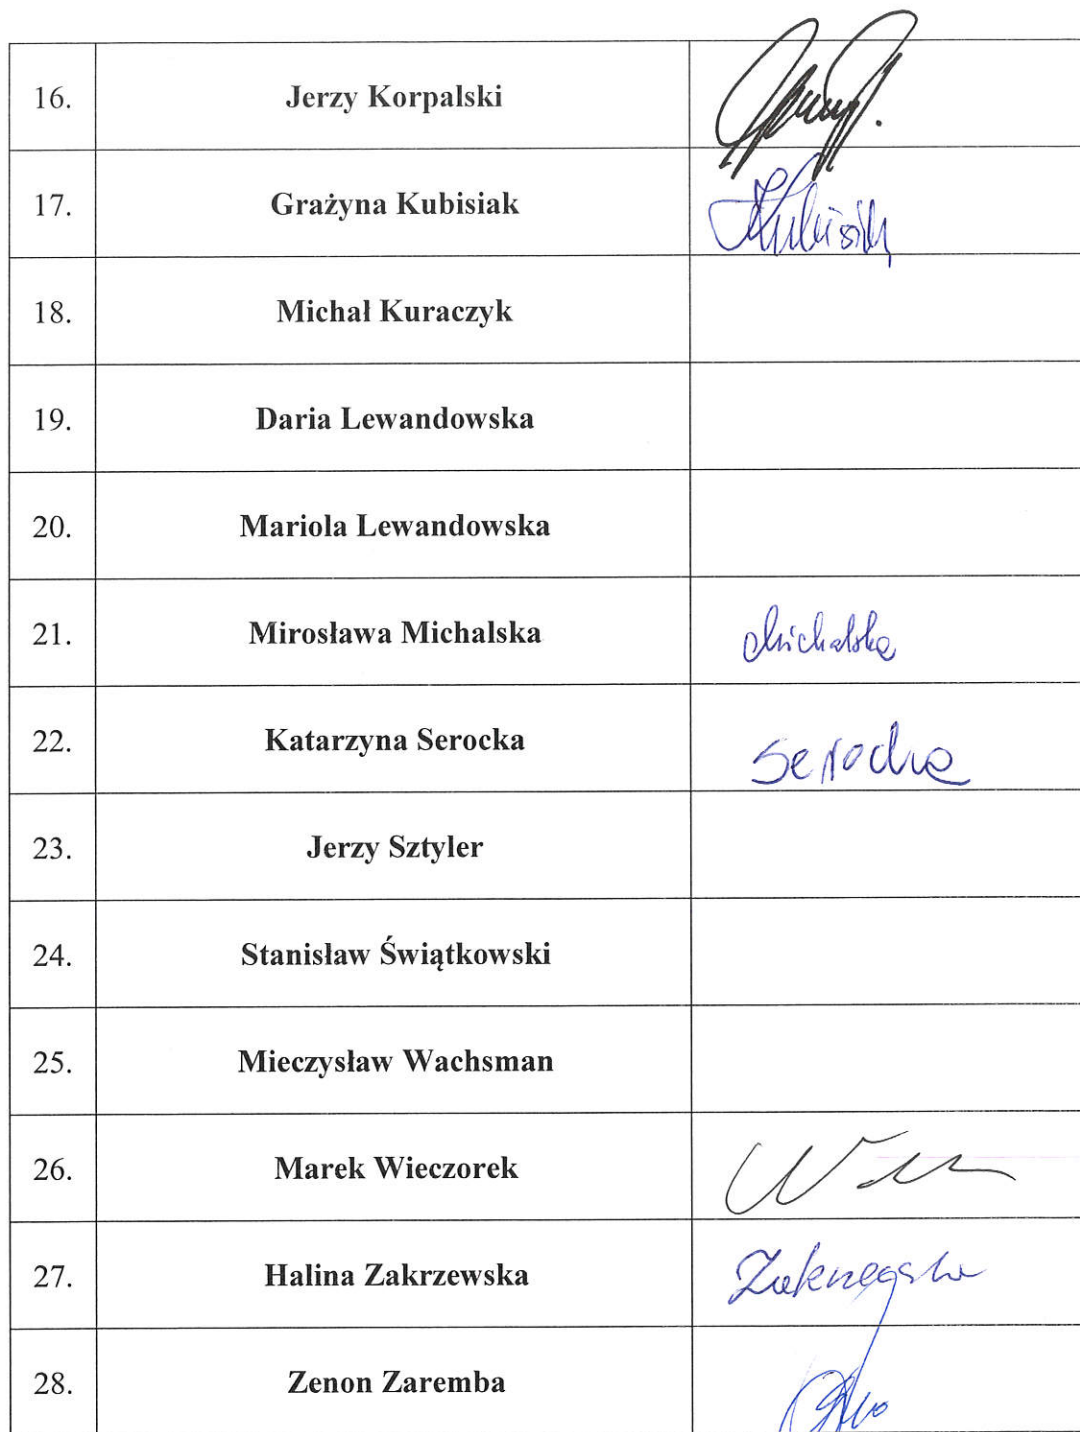 16. Jerzy Korpalski
17. Grażyna Kubisiak Kubisiak
18. Michał Kuraczyk
19. Daria Lewandowska
20. Mariola Lewandowska
21. Mirosława Michalska Michalska
22. Katarzyna Serocka Serocka
23. Jerzy Sztyler
24. Stanisław Świątkowski
25. Mieczysław Wachsman
26. Marek Wieczorek
27. Halina Zakrzewska Zakrzewska
28. Zenon Zaremba